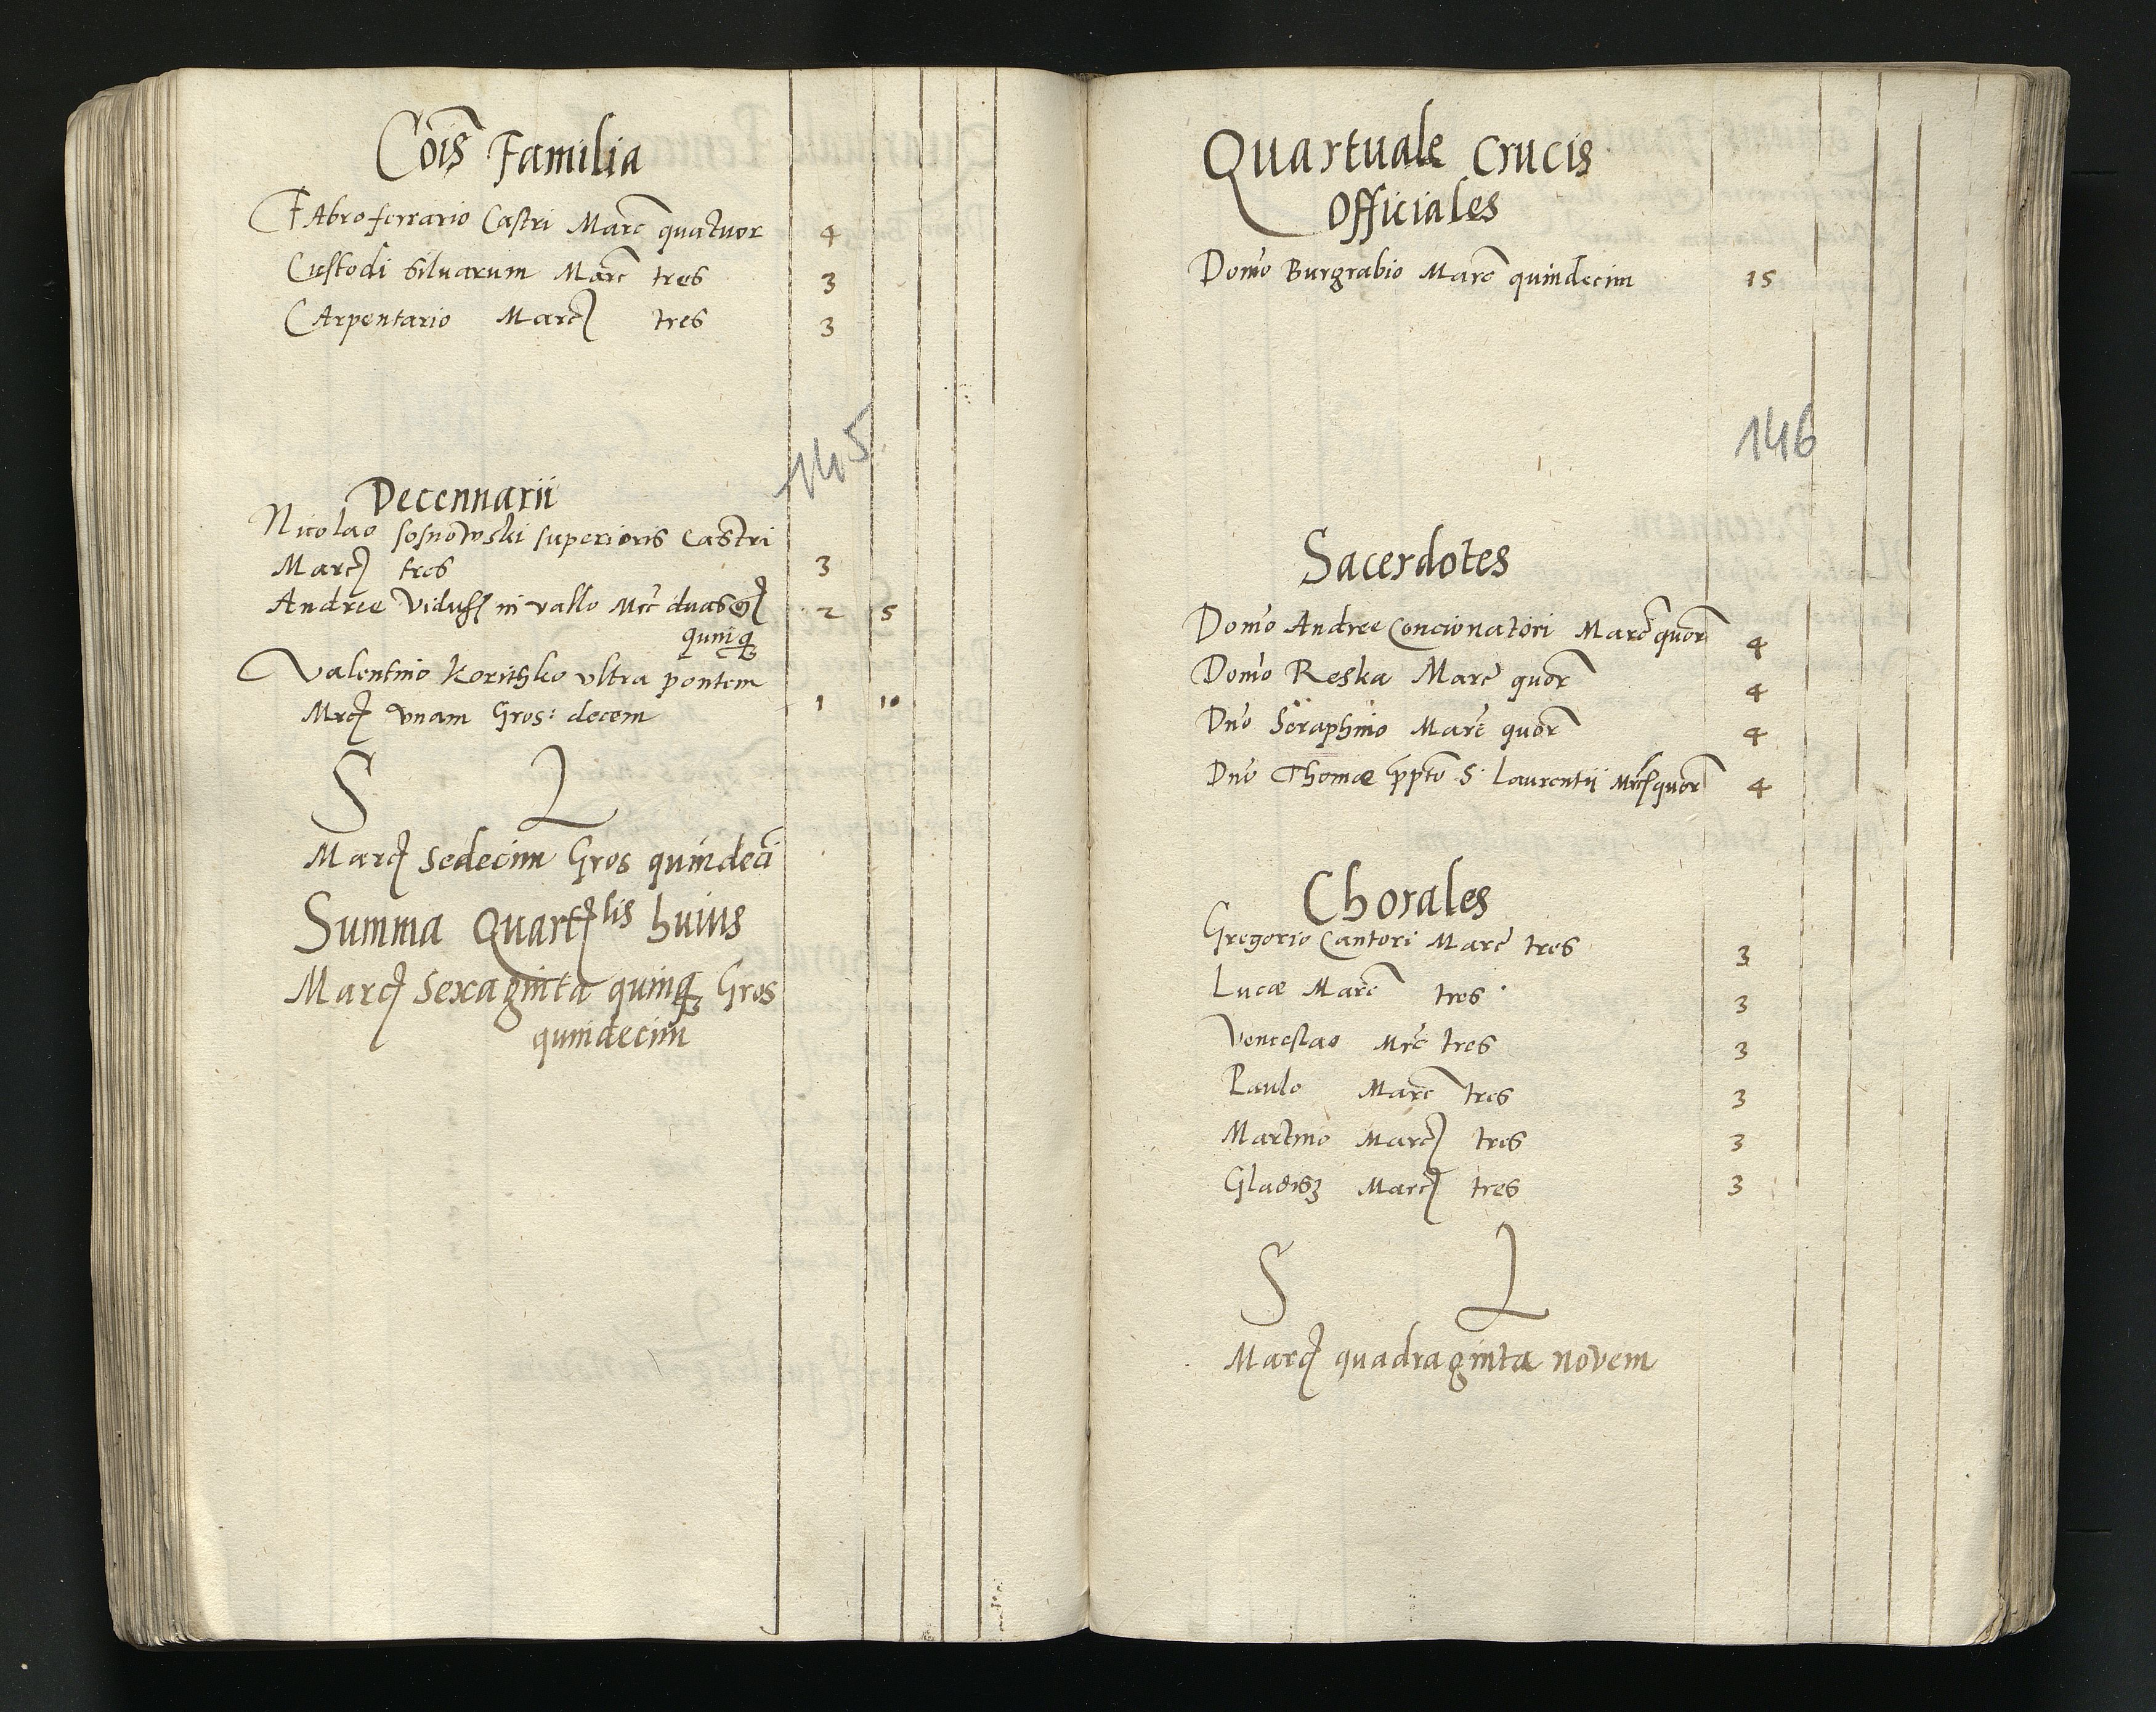 Cois Familia
Fabro ferrario Castri Marc quatuor 4
Custodi siluarum Marc tres 3
Carpentario Marc tres 3
145
Decennarii
Nicolao sosnowski superioris Castri
Marc tres 3
Andree in vallo Mrc duas g 2 5
quinq
Valentino Korithko vltra pontem
Mrc vnam Gros: decem 1 10
S L
Marc Sedecim Gros quindeci
Summa Quartlis huius
Marc Sexaginta quinq Gros
quindecim
Quartuale Crucis
Officiales
Domo Burgrabio Marc quindecim 15
146
Sacerdotes
Domo Andree Concionatori Marc quor 4
Domo Reska Marc quor 4
Dno Seraphino Marc quor 4
Dno Thomae ppto S. Laurentii Mrc quor 4
Chorales
Gregorio Cantori Marc tres 3
Lucae Marc tres 3
Venceslao Mrc tres 3
Paulo Marc tres 3
Martino Marc tres 3
Gladisz Marc tres 3
S L
Marc quadraginta novem